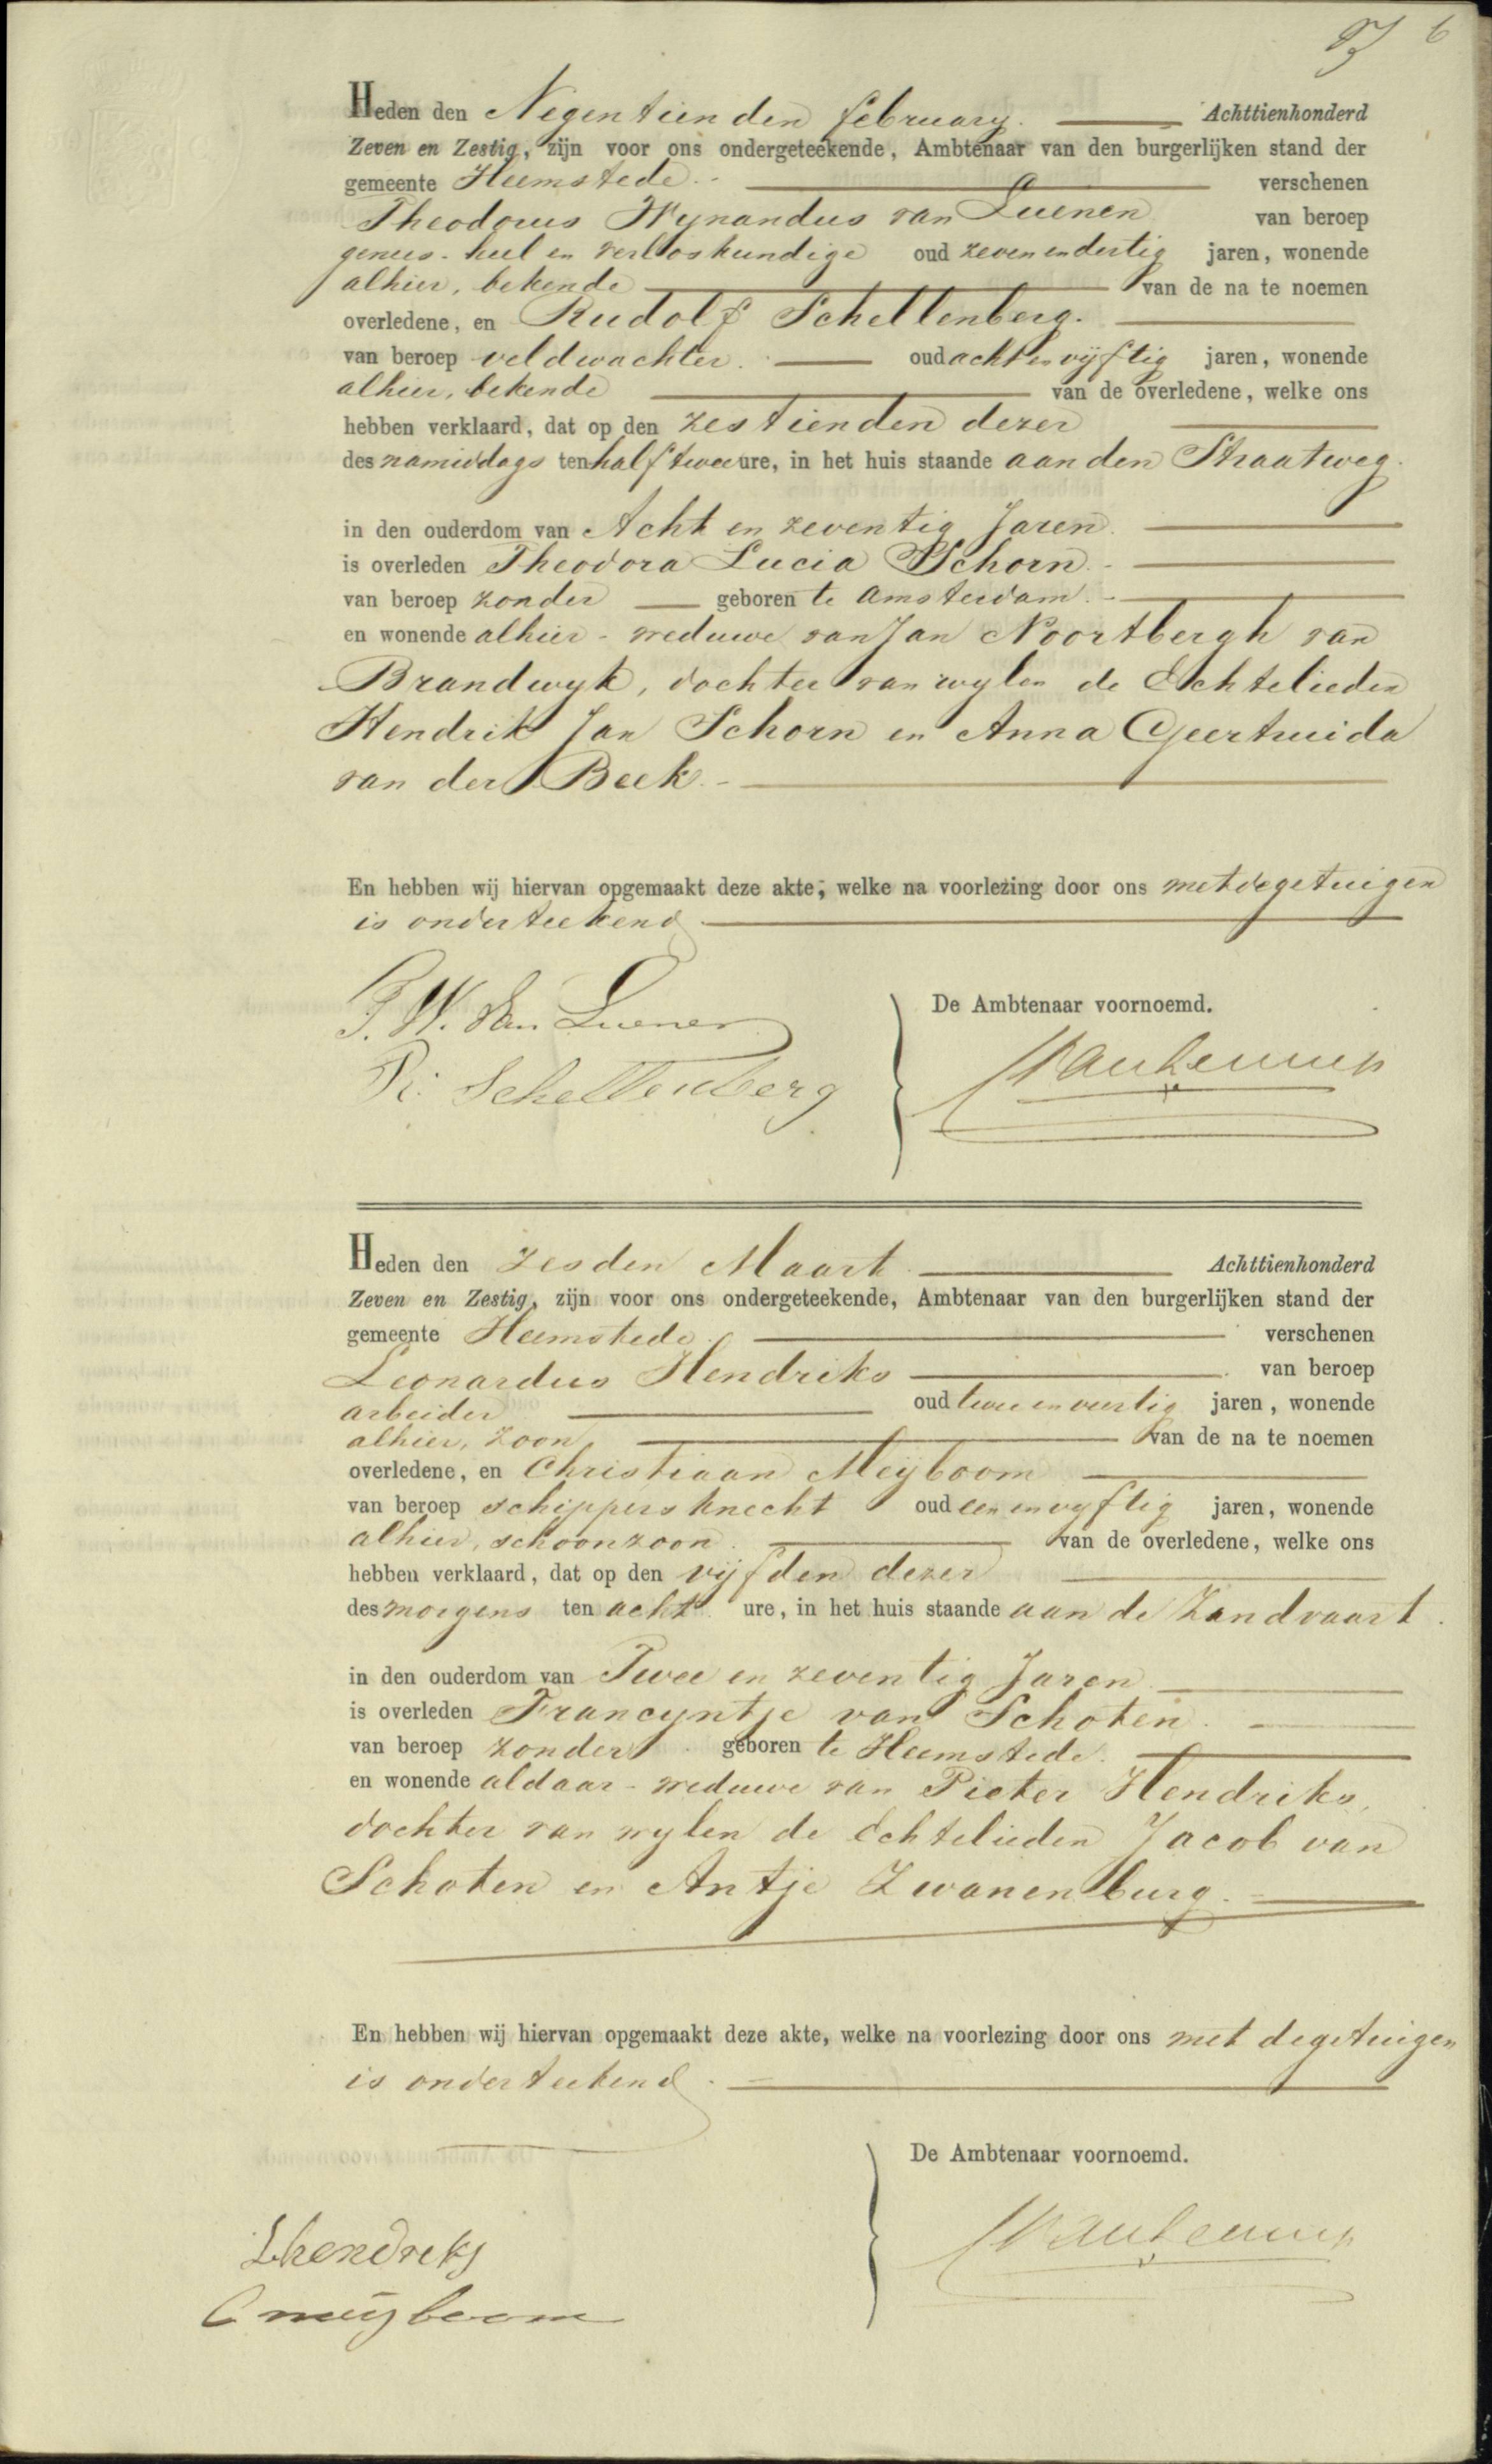 6
Heden den Negentienden february. Achttienhonderd
Zeven en Zestig, zijn voor ons ondergeteekende, Ambtenaar van den burgerlijken stand der
gemeente Heemstede verschenen
Theodorus Wynandus van Luenen van beroep
genees- heel en verloskundige oud zevenendertig jaren, wonende
alhier, bekende van de na te noemen
overledene, en Rudolf Schellenberg.
van beroep veldwachter. oud acht en vyftig jaren, wonende
alhier, bekende van de overledene, welke ons
hebben verklaard, dat op den zestienden dezer
des namiddags ten half twee ure, in het huis staande aan den Straatweg.
in den ouderdom van Acht en zeventig Jaren.
is overleden Theodora Lucia Schorn.
van beroep zonder geboren te Amsterdam.
en wonende alhier - weduwe van Jan Noortbergh van
Brandwyk, dochter van wylen de Echtelieden
Hendrik Jan Schorn en Anna Geertruida
van der Beek.
En hebben wij hiervan opgemaakt deze akte, welke na voorlezing door ons met de getuigen
is onderteekend.
De Ambtenaar voornoemd.
T. W. Van Luenen
R. Schellenberg
Heden den zesden Maart Achttienhonderd
Zeven en Zestig, zijn voor ons ondergeteekende, Ambtenaar van den burgerlijken stand der
gemeente Heemstede. verschenen
Leonardus Hendriks van beroep
arbeider oud twee en veertig jaren, wonende
alhier, zoon van de na te noemen
overledene, en Christiaan Meijboom
van beroep schippersknecht oud een en vyftig jaren, wonende
alhier, schoonzoon. van de overledene, welke ons
hebben verklaard, dat op den vijfden dezer
des morgens ten acht ure, in het huis staande aan de Zandvaart.
in den ouderdom van Twee en zeventig Jaren
is overleden Francyntje van Schoten.
van beroep zonder geboren te Heemstede.
en wonende aldaar - weduwe van Pieter Hendriks,
dochter van wylen de Echtelieden Jacob van
Schoten en Antje Zwanenburg.
En hebben wij hiervan opgemaakt deze akte, welke na voorlezing door ons met de getuigen
is onderteekend.
De Ambtenaar voornoemd.
L hendreks
C meijboom